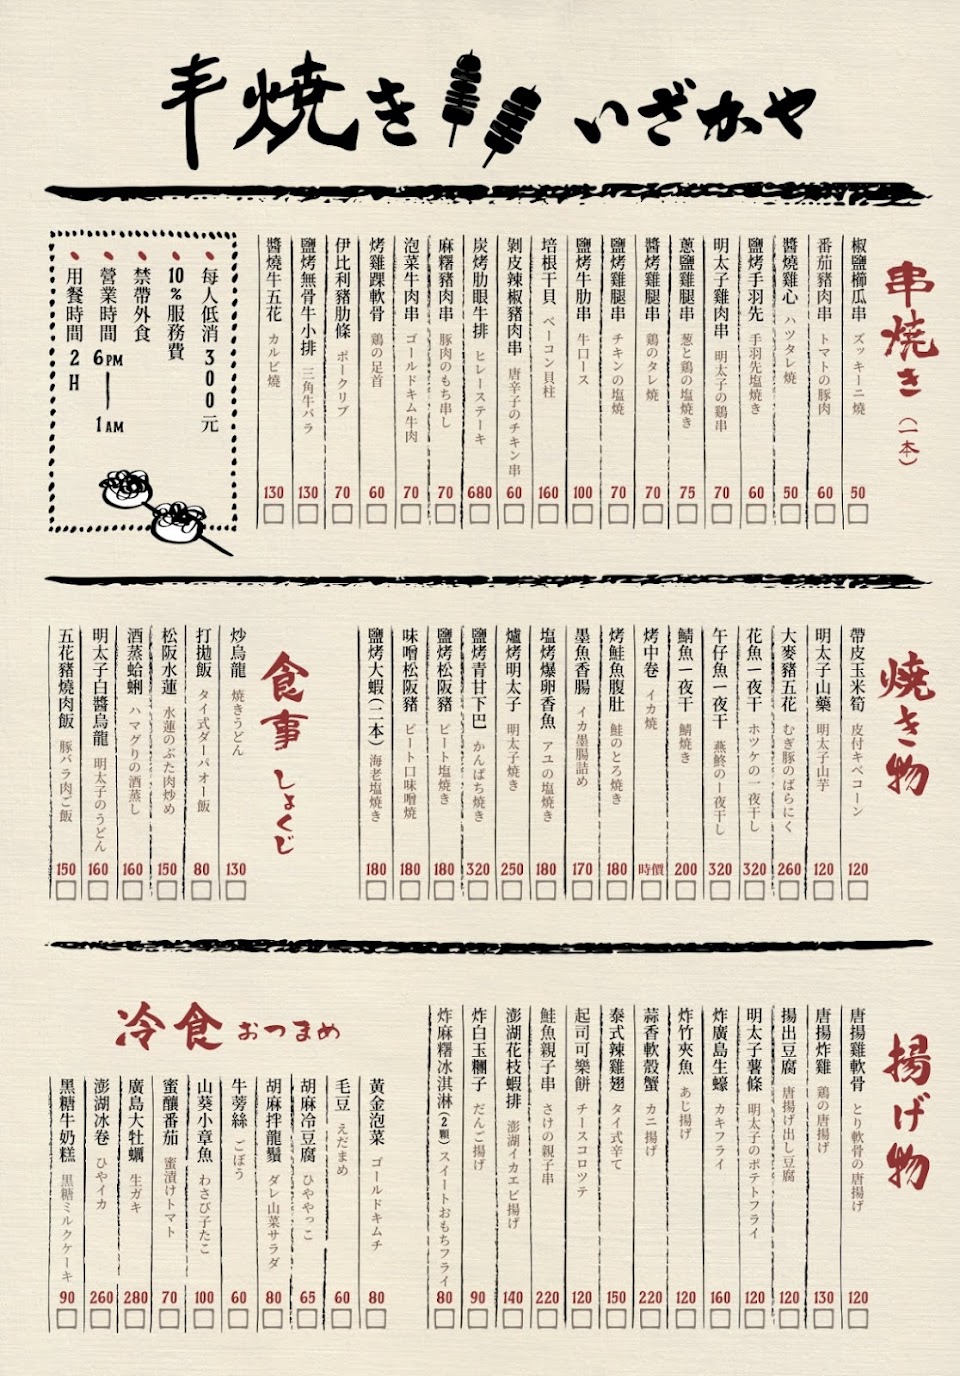 串焼き いざかや
串焼き(一本)
椒鹽櫛瓜串 ズッキーニ焼 50
番茄豬肉串 トマトの豚肉 60
醬燒雞心 ハツタレ焼 50
鹽烤手羽先 手羽先塩焼き 60
明太子雞肉串 明太子の鶏串 70
蔥鹽雞腿串 葱と鶏の塩焼き 75
醬烤雞腿串 鶏のタレ焼 70
鹽烤雞腿串 チキンの塩焼 70
鹽烤牛肋串 牛口ース 100
培根干貝 ベーコン貝柱 160
剝皮辣椒豬肉串 唐辛子のチキン串 60
炭烤肋眼牛排 ヒレーステーキ 680
麻糬豬肉串 豚肉のもち串し 70
泡菜牛肉串 ゴールドキム牛肉 70
烤雞踝軟骨 鶏の足首 60
伊比利豬肋條 ポークリブ 70
鹽烤無骨牛小排 三角牛バラ 130
醬燒牛五花 カルビ燒 130
每人低消300元
10%服務費
禁帶外食
營業時間 6PM｜1AM
用餐時間2H
焼き物
帶皮玉米筍 皮付キベコーン 120
明太子山藥 明太子山芋 120
大麥豬五花 むぎ豚のばらにく 260
花魚一夜干 ホツケの一夜干し 320
午仔魚一夜干 燕鮗の一夜干し 320
鯖魚一夜干 鯖焼き 200
烤中卷 イカ焼 時價
烤鮭魚腹肚 鮭のとろ焼き 180
墨魚香腸 イカ墨腸詰め 170
塩烤爆卵香魚 アユの塩焼き 180
爐烤明太子 明太子焼き 250
鹽烤青甘下巴 かんぱち焼き 320
鹽烤松阪豬 ピート塩焼き 180
味噌松阪豬 ピート口味噌焼 180
鹽烤大蝦(二本) 海老塩焼き 180
食事 しょくじ
炒烏龍 焼きうどん 130
打拋飯 タイ式ダーパオー飯 80
松阪水蓮 水蓮のぶた肉炒め 150
酒蒸蛤蜊 ハマグりの酒蒸し 160
明太子白醬烏龍 明太子のうどん 160
五花豬燒肉飯 豚バラ肉ご飯 150
揚げ物
唐揚雞軟骨 とり軟骨の唐揚げ 120
唐揚炸雞 鶏の唐揚げ 130
揚出豆腐 唐揚げ出し豆腐 120
明太子薯條 明太子のポテトフライ 120
炸廣島生蠔 カキフライ 160
炸竹夾魚 あじ揚げ 120
蒜香軟殼蟹 カニ揚げ 220
泰式辣雞翅 タイ式辛て 150
起司可樂餅 チースコロツテ 120
鮭魚親子串 さけの親子串 220
澎湖花枝蝦排 澎湖イカエビ揚げ 140
炸白玉糰子 だんご揚げ 90
炸麻糬冰淇淋(2顆) スイートおもちフライ 80
冷食 おつまめ
黃金泡菜 ゴールドキムチ 80
毛豆 えだまめ 60
胡麻冷豆腐 ひややっこ 65
胡麻拌龍鬚 ダレ山菜サラダ 80
牛蒡絲 ごぼう 60
山葵小章魚 わさび子たこ 100
蜜釀番茄 蜜漬けトマト 70
廣島大牡蠣 生ガキ 280
澎湖冰卷 ひやイカ 260
黑糖牛奶糕 黒糖ミルクケーキ 90